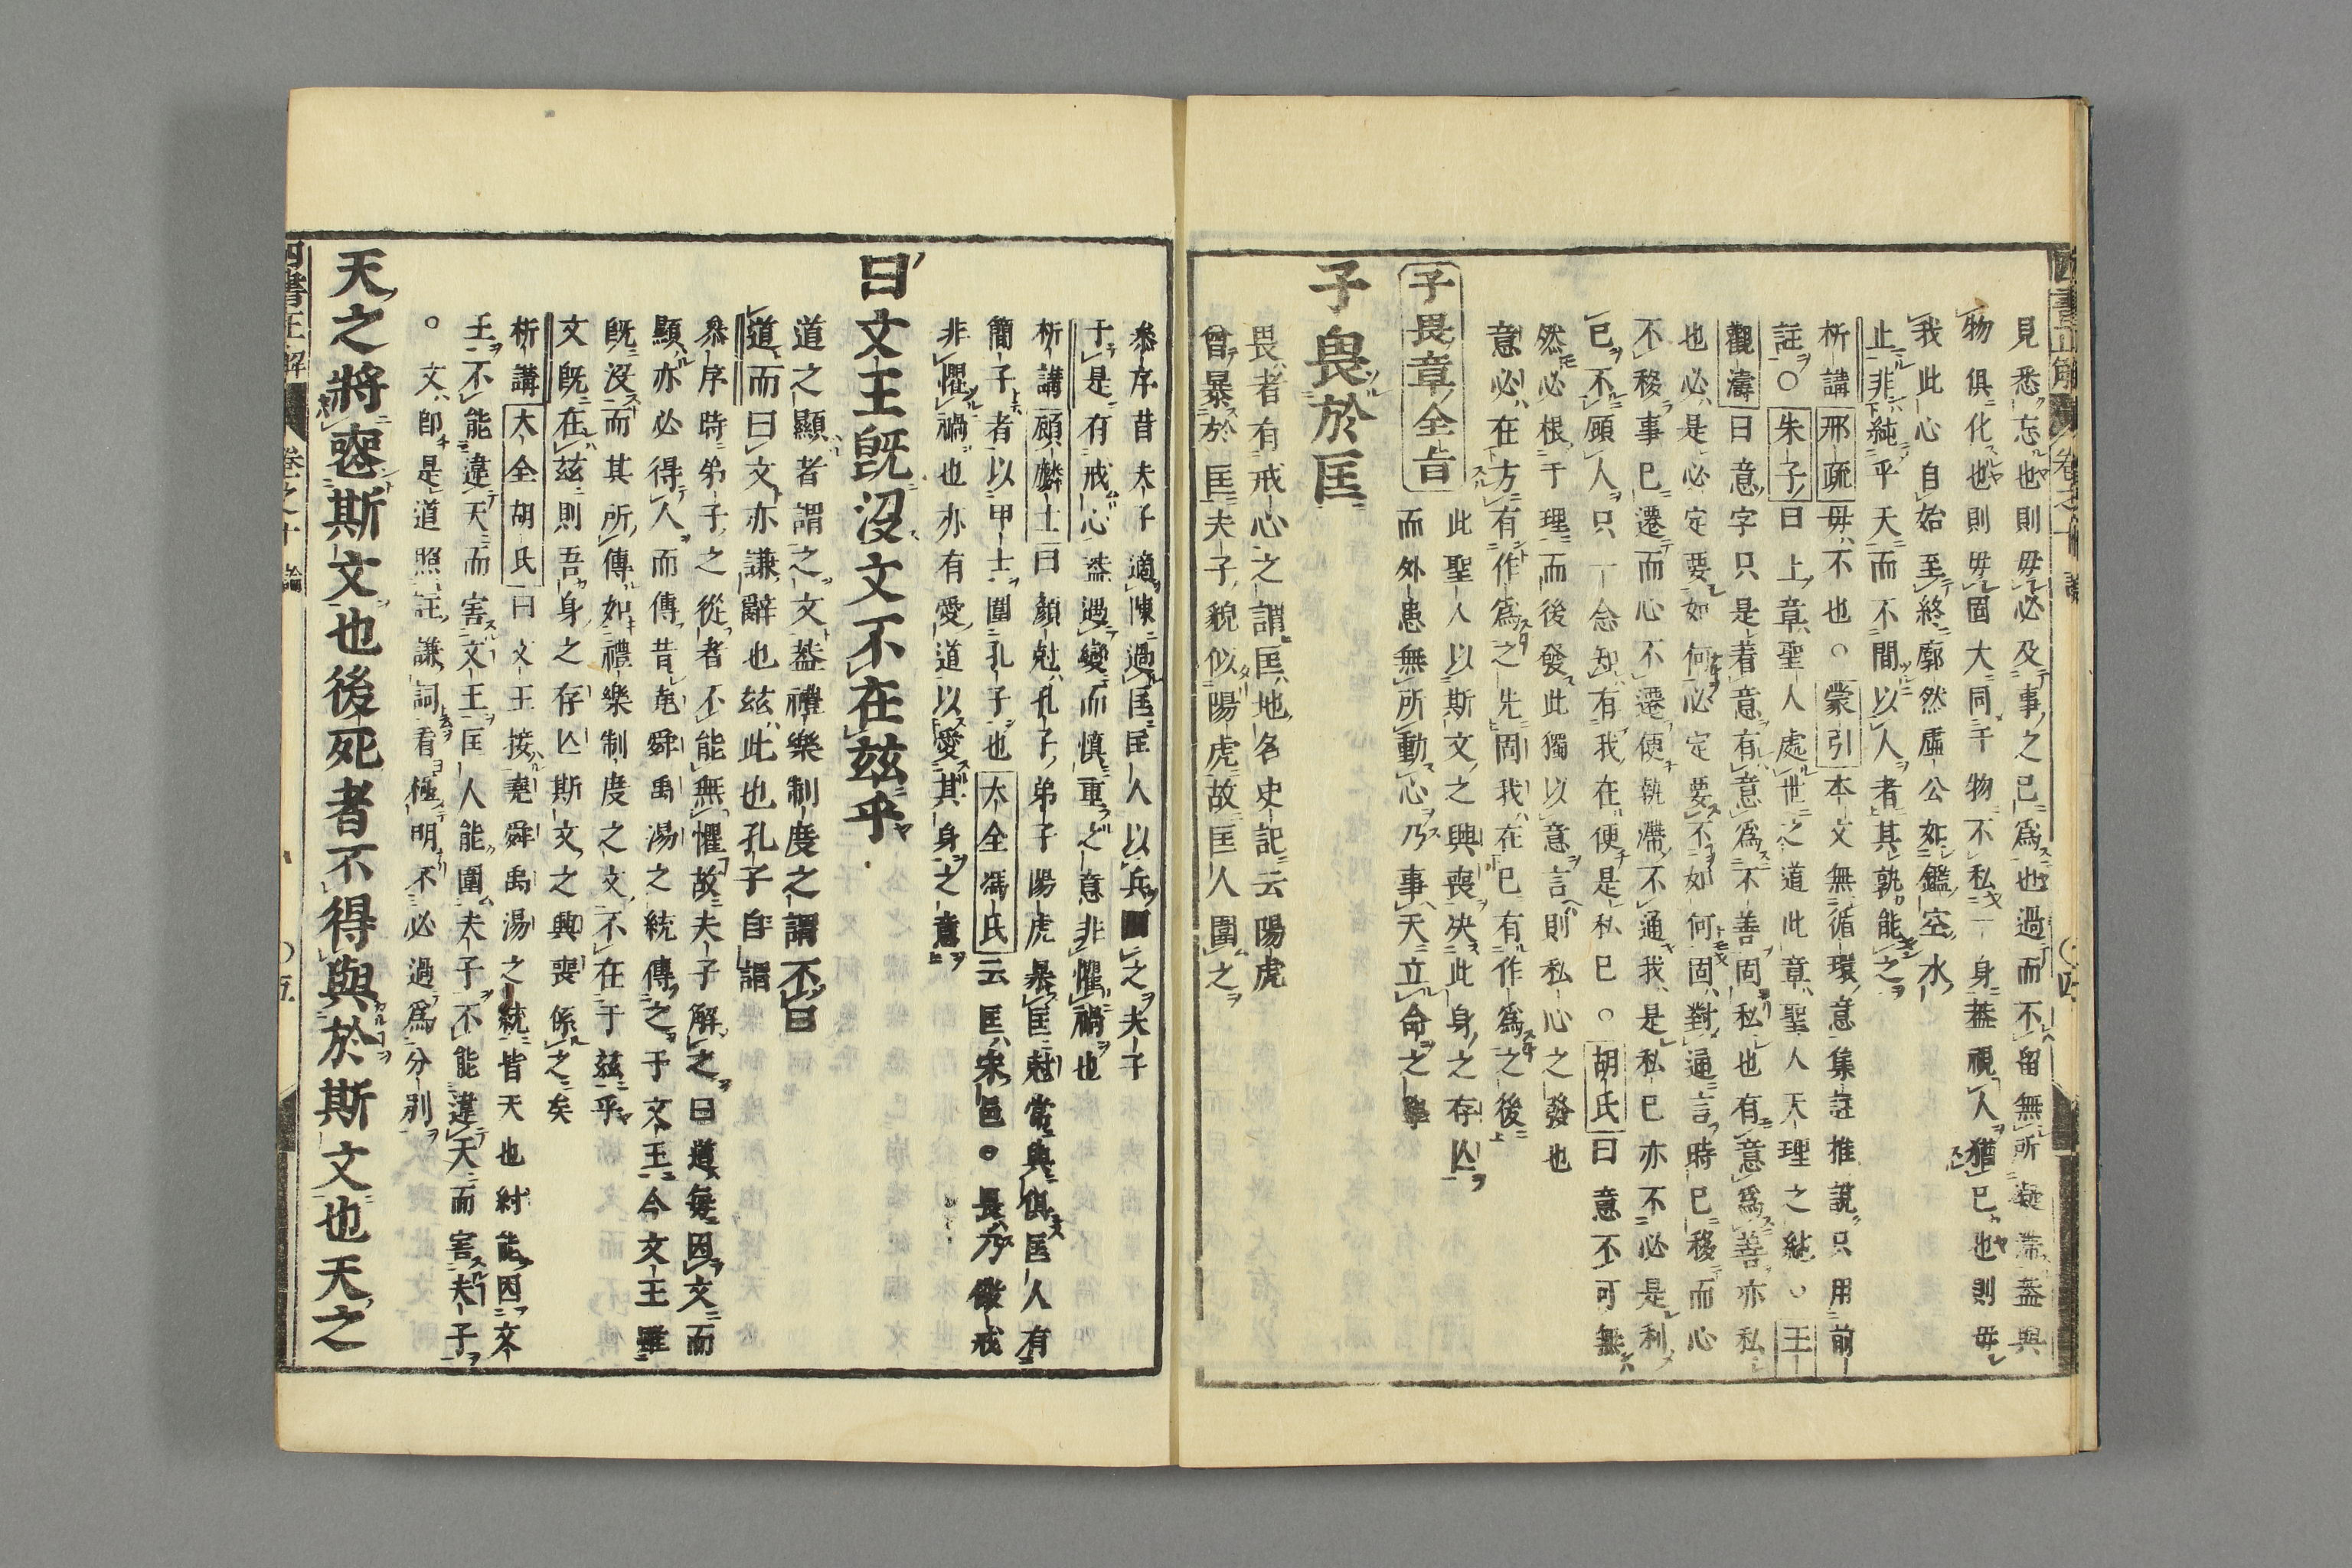 見悉忘也則毋必及事之已爲也過而不留無所凝滯蓋與
物俱化也則毋固大同于物不私一身蓋視人猶己也則毋
我此心自始至終廓然虛公如鑑空水
止非純乎天而不間以人者其孰能之
析講邢疏毋不也○蒙引本文無循環意集註推說只用前
註○朱子曰上章聖人處世之道此章聖人天理之純○王
觀濤曰意字只是着意有意爲不善固私也有意爲善亦私
也必是必定要如何必定要不如何固對通言時已移而心
不移事已遷而心不遷便執滯不通我是私己亦不必是利
己不顧人只一念知有我在便是私己○胡氏曰意不可無
然必根于理而後發此獨以意言則私心之發也
意必在方有作爲之先固我在已有作爲之後
子畏章全旨
此聖人以斯文之興喪决此身之存亾
而外患無所動心乃事天立命之學
子畏於匡
畏者有戒心之謂匡地名史記云陽虎
曾暴於匡夫子貌似陽虎故匡人圍之
四書正解
卷之十
論
五
叅序昔夫子適陳過匡匡人以兵圍之夫子
于是有戒心蓋遇變而慎重之意非懼禍也
析講顧麟士曰顏尅孔子弟子陽虎暴匡尅常與俱匡人有
簡子者以甲士圍孔子也大全馮氏云匡宋邑○畏乃儆戒
非懼禍也亦有愛道以愛其身之意
曰文王旣沒文不在茲乎
道之顯者謂之文蓋禮樂制度之謂不曰
道而曰文亦謙辭也茲此也孔子自謂
叅序時弟子之從者不能無懼故夫子解之曰道每因文而
顯亦必得人而傳昔尭舜禹湯之統傳之于文王今文王雖
旣沒而其所傳如禮樂制度之文不在于茲乎
文旣在茲則吾身之存亾斯文之興喪係之矣
析講大全胡氏曰文王接堯舜禹湯之統皆天也紂能因文
王不能違天而害文王匡人能圍夫子不能違天而害夫子
○文卽是道照註謙詞看極明不必過爲分别
天之將喪斯文也後死者不得與於斯文也天之